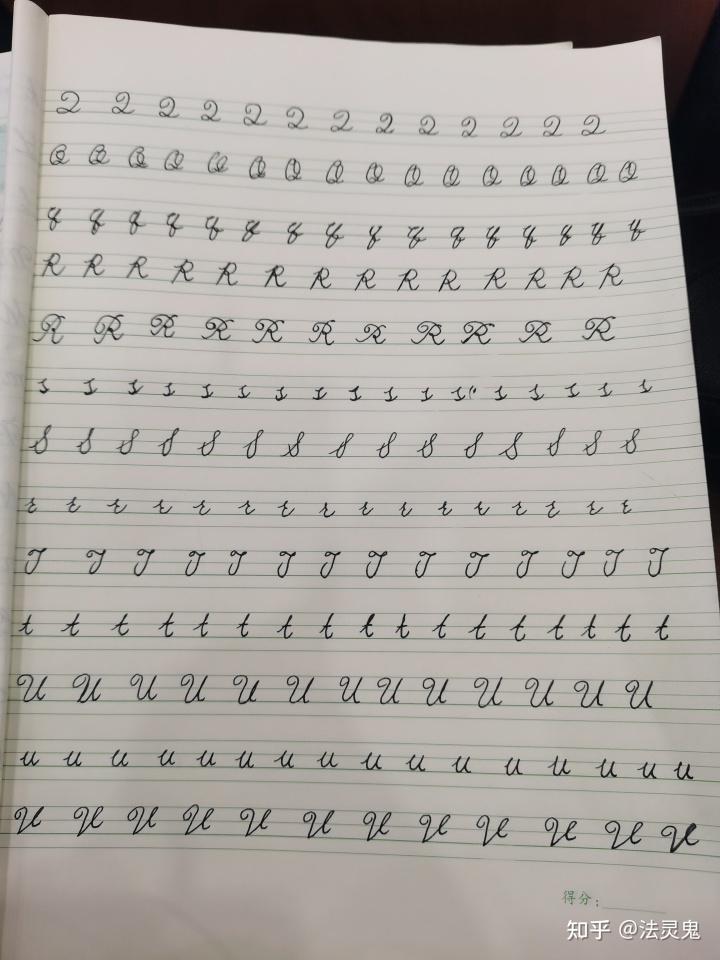 Q Q Q Q Q Q Q Q Q Q Q Q Q
Q Q Q Q Q Q Q Q Q Q Q Q Q Q Q Q
q q q q q q q q q q q q q q q q
R R R R R R R R R R R R R R
R R R R R R R R R R R
s s s s s s s s s s s s s s s s s
S S S S S S S S S S S S S S S
r r r r r r r r r r r r r r r r
T T T T T T T T T T T T T T
t t t t t t t t t t t t t t t t t
U U U U U U U U U U U U U
u u u u u u u u u u u u u u u u
U U U U U U U U U U U U
得分:
知乎 @法灵鬼